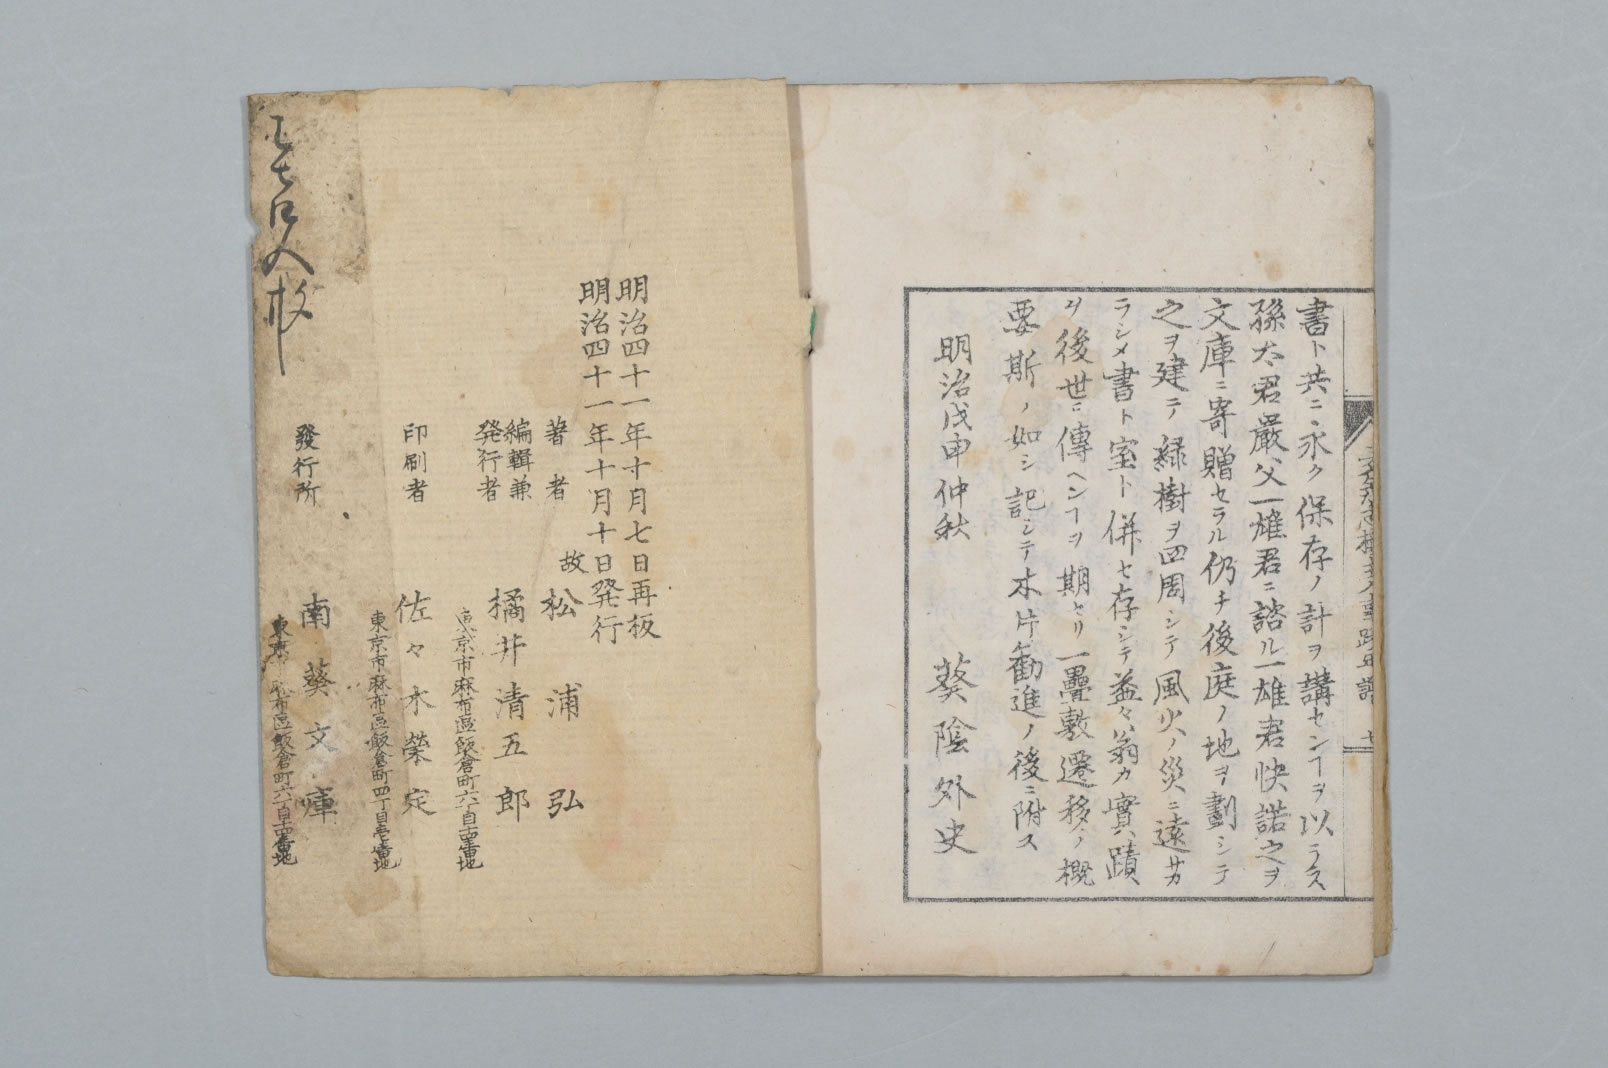 書ト共ニ永ク保存ノ計ヲ講センヿヲ以ラス
孫太君嚴父一雄君ニ諮ル一雄君快諾之ヲ
文庫ニ寄贈セラル仍チ後庭ノ地ヲ劃シテ
之ヲ建テ緑樹ヲ四周シテ風火ノ災ニ遠サカ
ラシメ書ト室ト併セ存シテ益々翁カ實蹟
ヲ後世ニ傳ヘンヿヲ期セリ一疊敷遷移ノ概
要斯ノ如シ記シテ木片勸進ノ後ニ附ス
明治戊申仲秋 葵陰外史
七
明治四十一年十月七日再板
明治四十一年十月十日発行
著者 故 松浦弘
編輯兼
発行者 橘井清五郎
東京市麻布區飯倉町六丁目十四番地
印刷者 佐々木榮定
東京市麻布區飯倉町四丁目壱番地
發行所 南葵文庫
東京市麻布區飯倉町六丁目十四番地